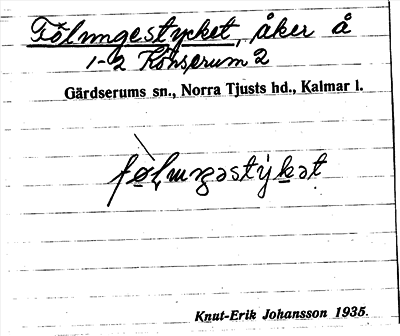 Fölungestycket, åker å
1-2 Konserum 2
Gärdserums sn., Norra Tjusts hd., Kalmar l.
Knut-Erik Johansson 1935.